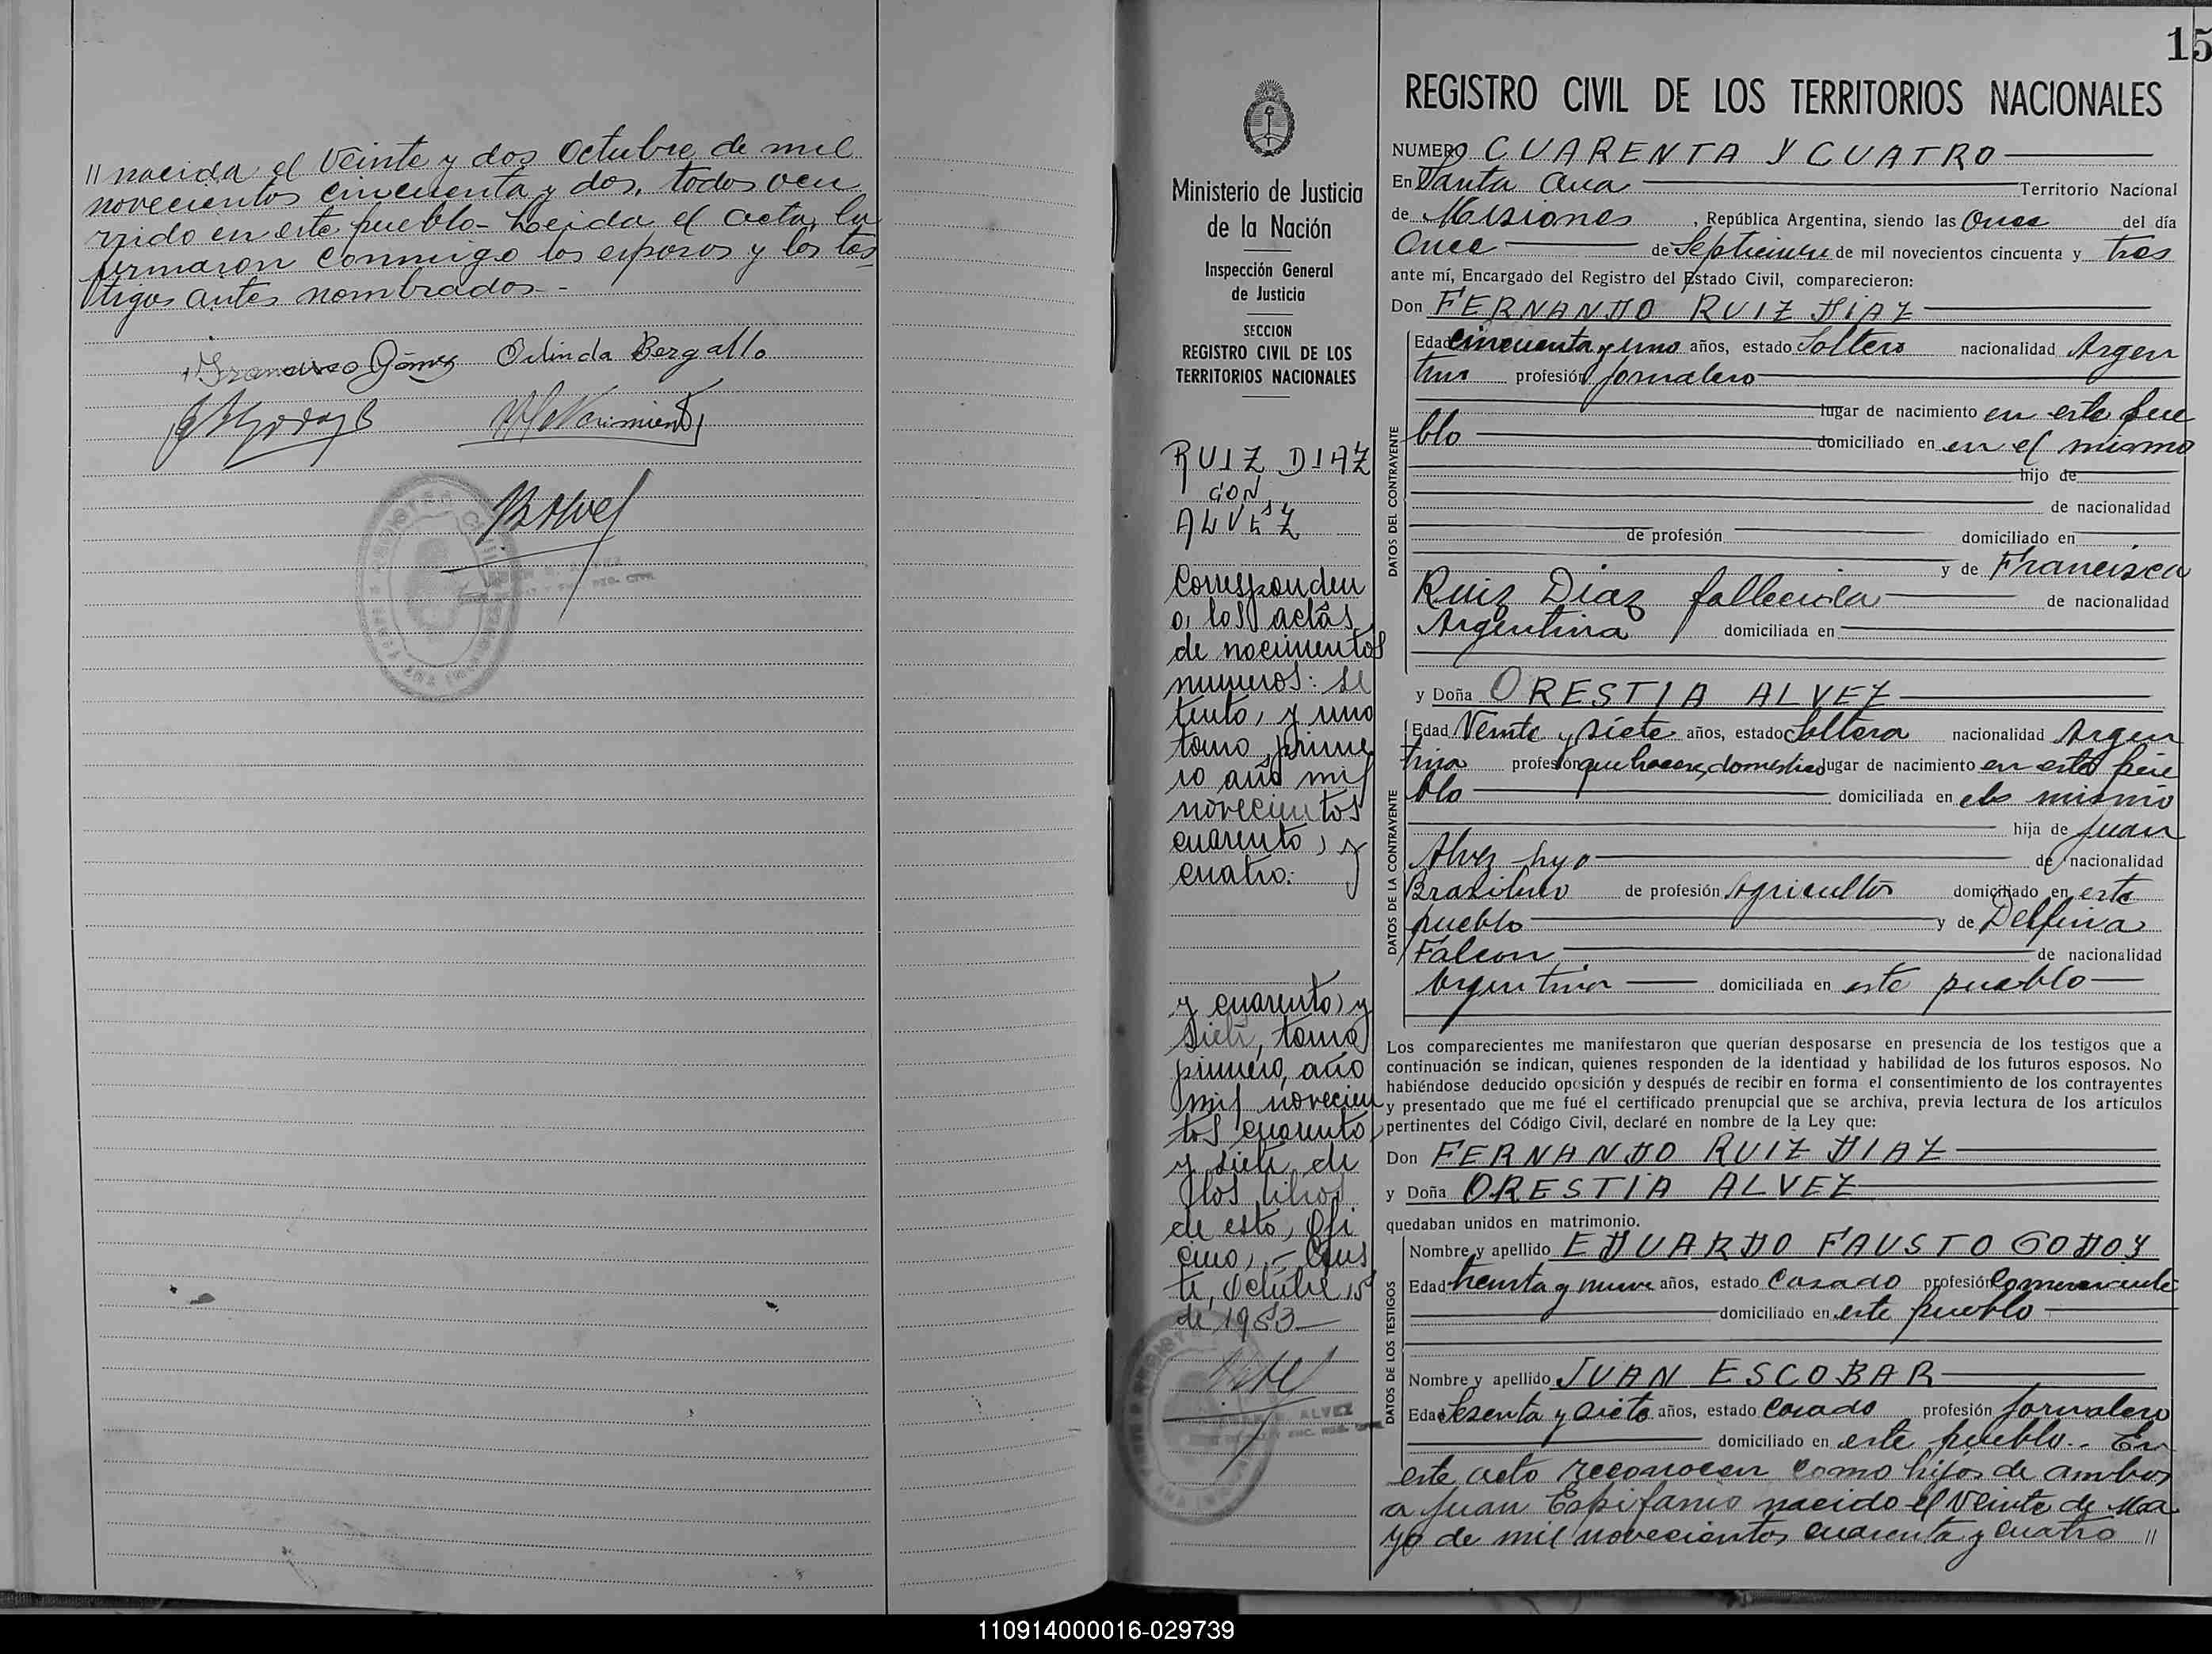 // nacida el veinte y dos octubre de mil
novecientos cincuenta y dos, todos ocu
rrido en este pueblo - Leida el acta, la
firmaron conmigo los esposos y los tes
tigos antes nombrados -
Francisco Gómez Orlinda Bergallo
15
REGISTRO CIVIL DE LOS TERRITORIOS NACIONALES
Ministerio de Justicia
de la Nación
Inspección General
de Justicia
SECCION
REGISTRO CIVIL DE LOS
TERRITORIOS NACIONALES
RUIZ DIAZ
CON
ALVEZ
Corresponden
a los actas
de nacimientos
numeros: se
tenta, y uno
tomo prime
ro año mil
novecientos
cuarenta, y
cuatro:
y cuarenta, y
siete, tomo
primero, año
mil novecien
tos cuarenta
y siete de
los libros
de esta, Ofi
cina,
Octubre 15
de 1953
NUMERO CUARENTA Y CUATRO
En Santa Ana Territorio Nacional
de Misiones, República Argentina, siendo las Once del día
Once de Septiembre de mil novecientos cincuenta y tres
ante mí, Encargado del Registro del Estado Civil, comparecieron:
Don FERNANDO RUIZ DIAZ
DATOS DEL CONTRAYENTE
Edad cincuenta y uno años, estado Soltero nacionalidad Argen
tina profesión Jornalero
lugar de nacimiento en este pue
blo domiciliado en en el mismo
hijo de
de nacionalidad
de profesión domiciliado en
y de Francisca
Ruiz Diaz fallecida de nacionalidad
Argentina domiciliada en
y Doña ORESTIA ALVEZ
DATOS DE LA CONTRAYENTE
Edad Veinte y siete años, estado Soltera nacionalidad Argen
tina profesión que haceres domestico lugar de nacimiento en este pue
blo domiciliada en el mismo
hija de Juan
Alvez hijo de nacionalidad
Brasilero de profesión Agricultor domiciliado en este
pueblo y de Delfina
Falcon de nacionalidad
Argentina domiciliada en este pueblo
Los comparecientes me manifestaron que querían desposarse en presencia de los testigos que a
continuación se indican, quienes responden de la identidad y habilidad de los futuros esposos. No
habiéndose deducido oposición y después de recibir en forma el consentimiento de los contrayentes
y presentado que me fué el certificado prenupcial que se archiva, previa lectura de los artículos
pertinentes del Código Civil, declaré en nombre de la Ley que:
Don FERNANDO RUIZ DIAZ
y Doña ORESTIA ALVEZ
quedaban unidos en matrimonio.
DATOS DE LOS TESTIGOS
Nombre y apellido EDUARDO FAUSTO GODOY
Edad treinta y nueve años, estado Casado profesión Comerciante
domiciliado en este pueblo
Nombre y apellido JUAN ESCOBAR
Edad Sesenta y siete años, estado Casado profesión Jornalero
domiciliado en este pueblo.. En
este acto reconocen como hijos de ambos
a Juan Epifanio nacido el veinte de Ma
yo de mil novecientos cuarenta y cuatro //
110914000016-029739